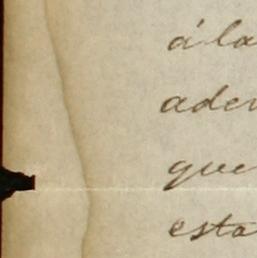 á la
ade
que
esta